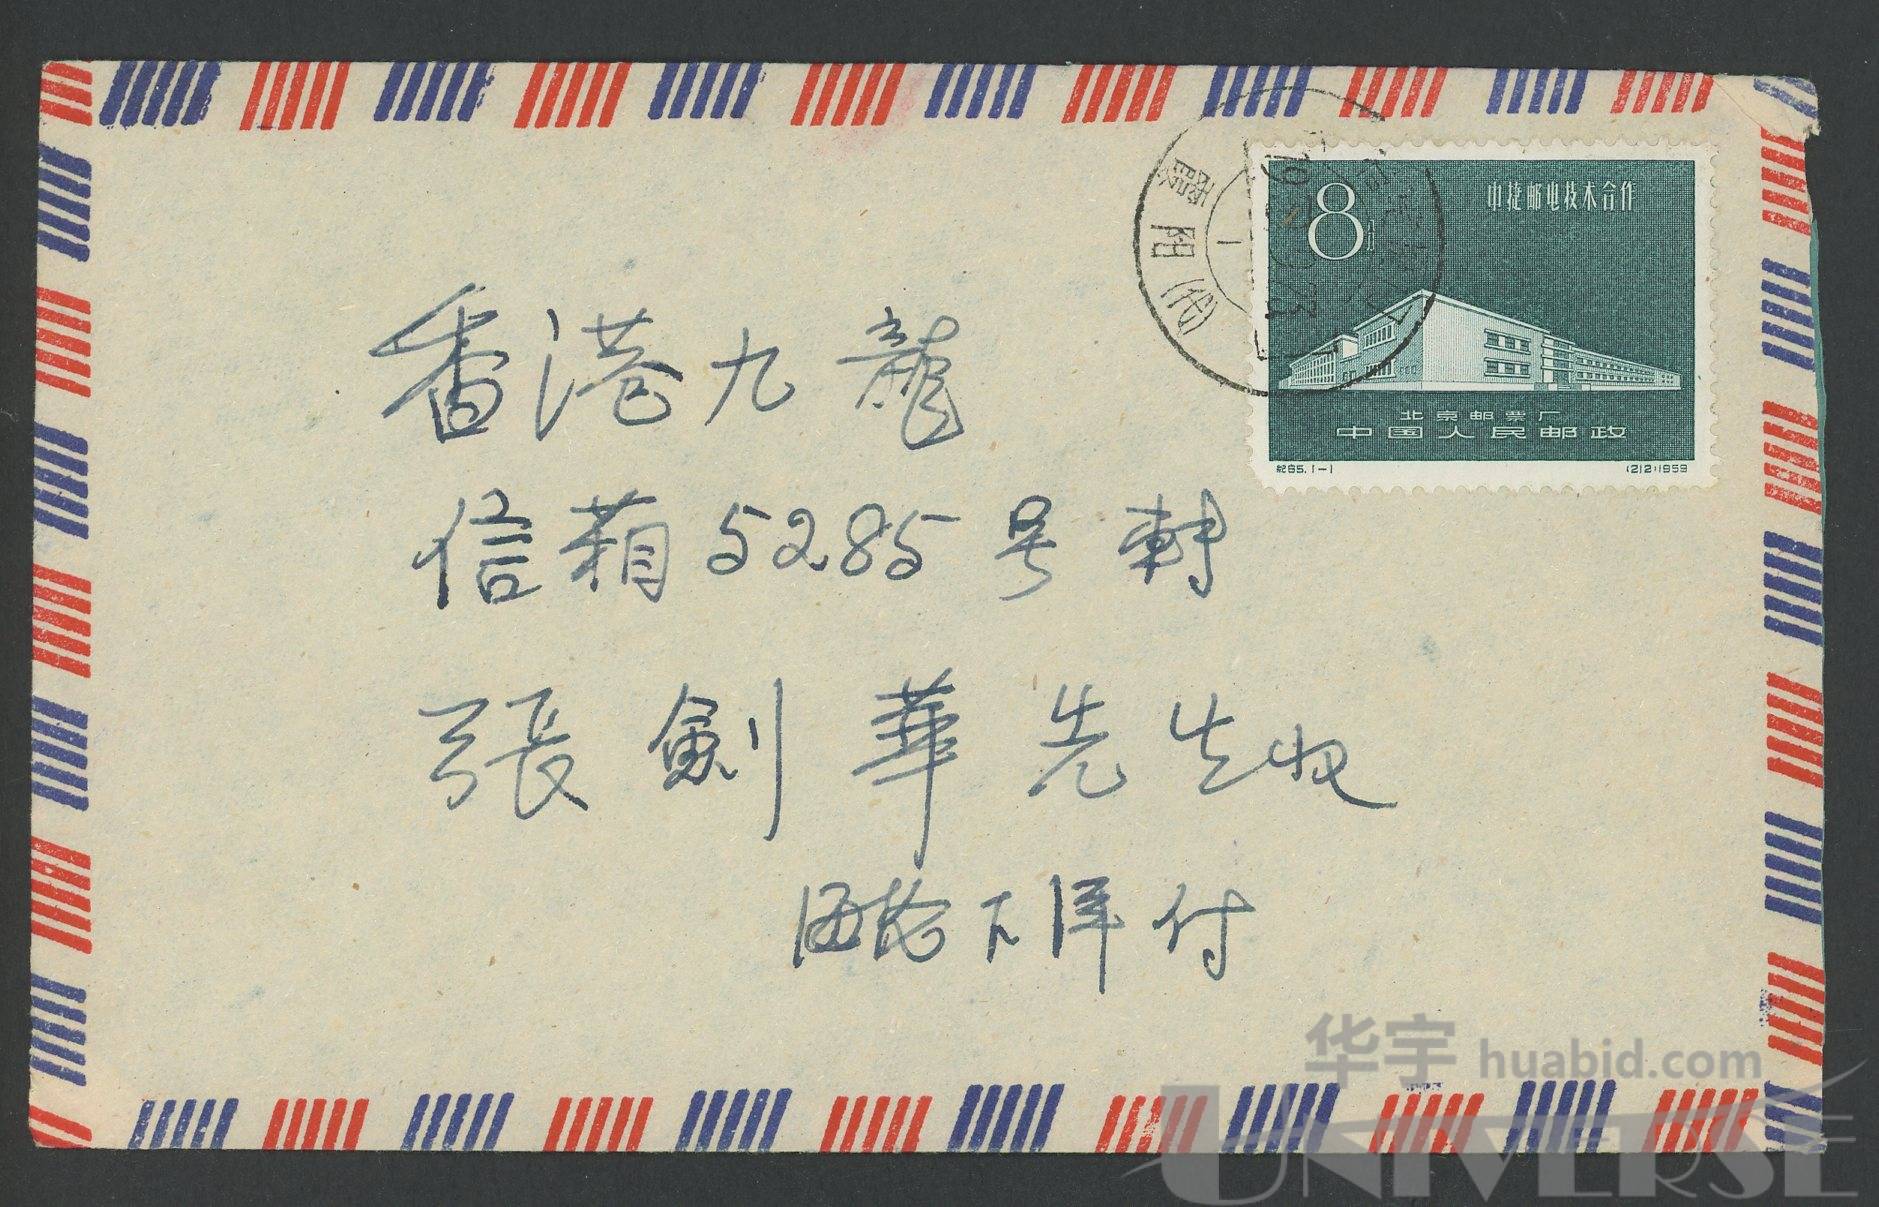 8分
中捷邮电技术合作
北京邮票厂
中国人民邮政
纪65.1-1
(212)1959
潮阳
1
香港九龍
信箱5285号轉
張劍華先生收
下洋付
华宇 huabid.com
UNIVERSE